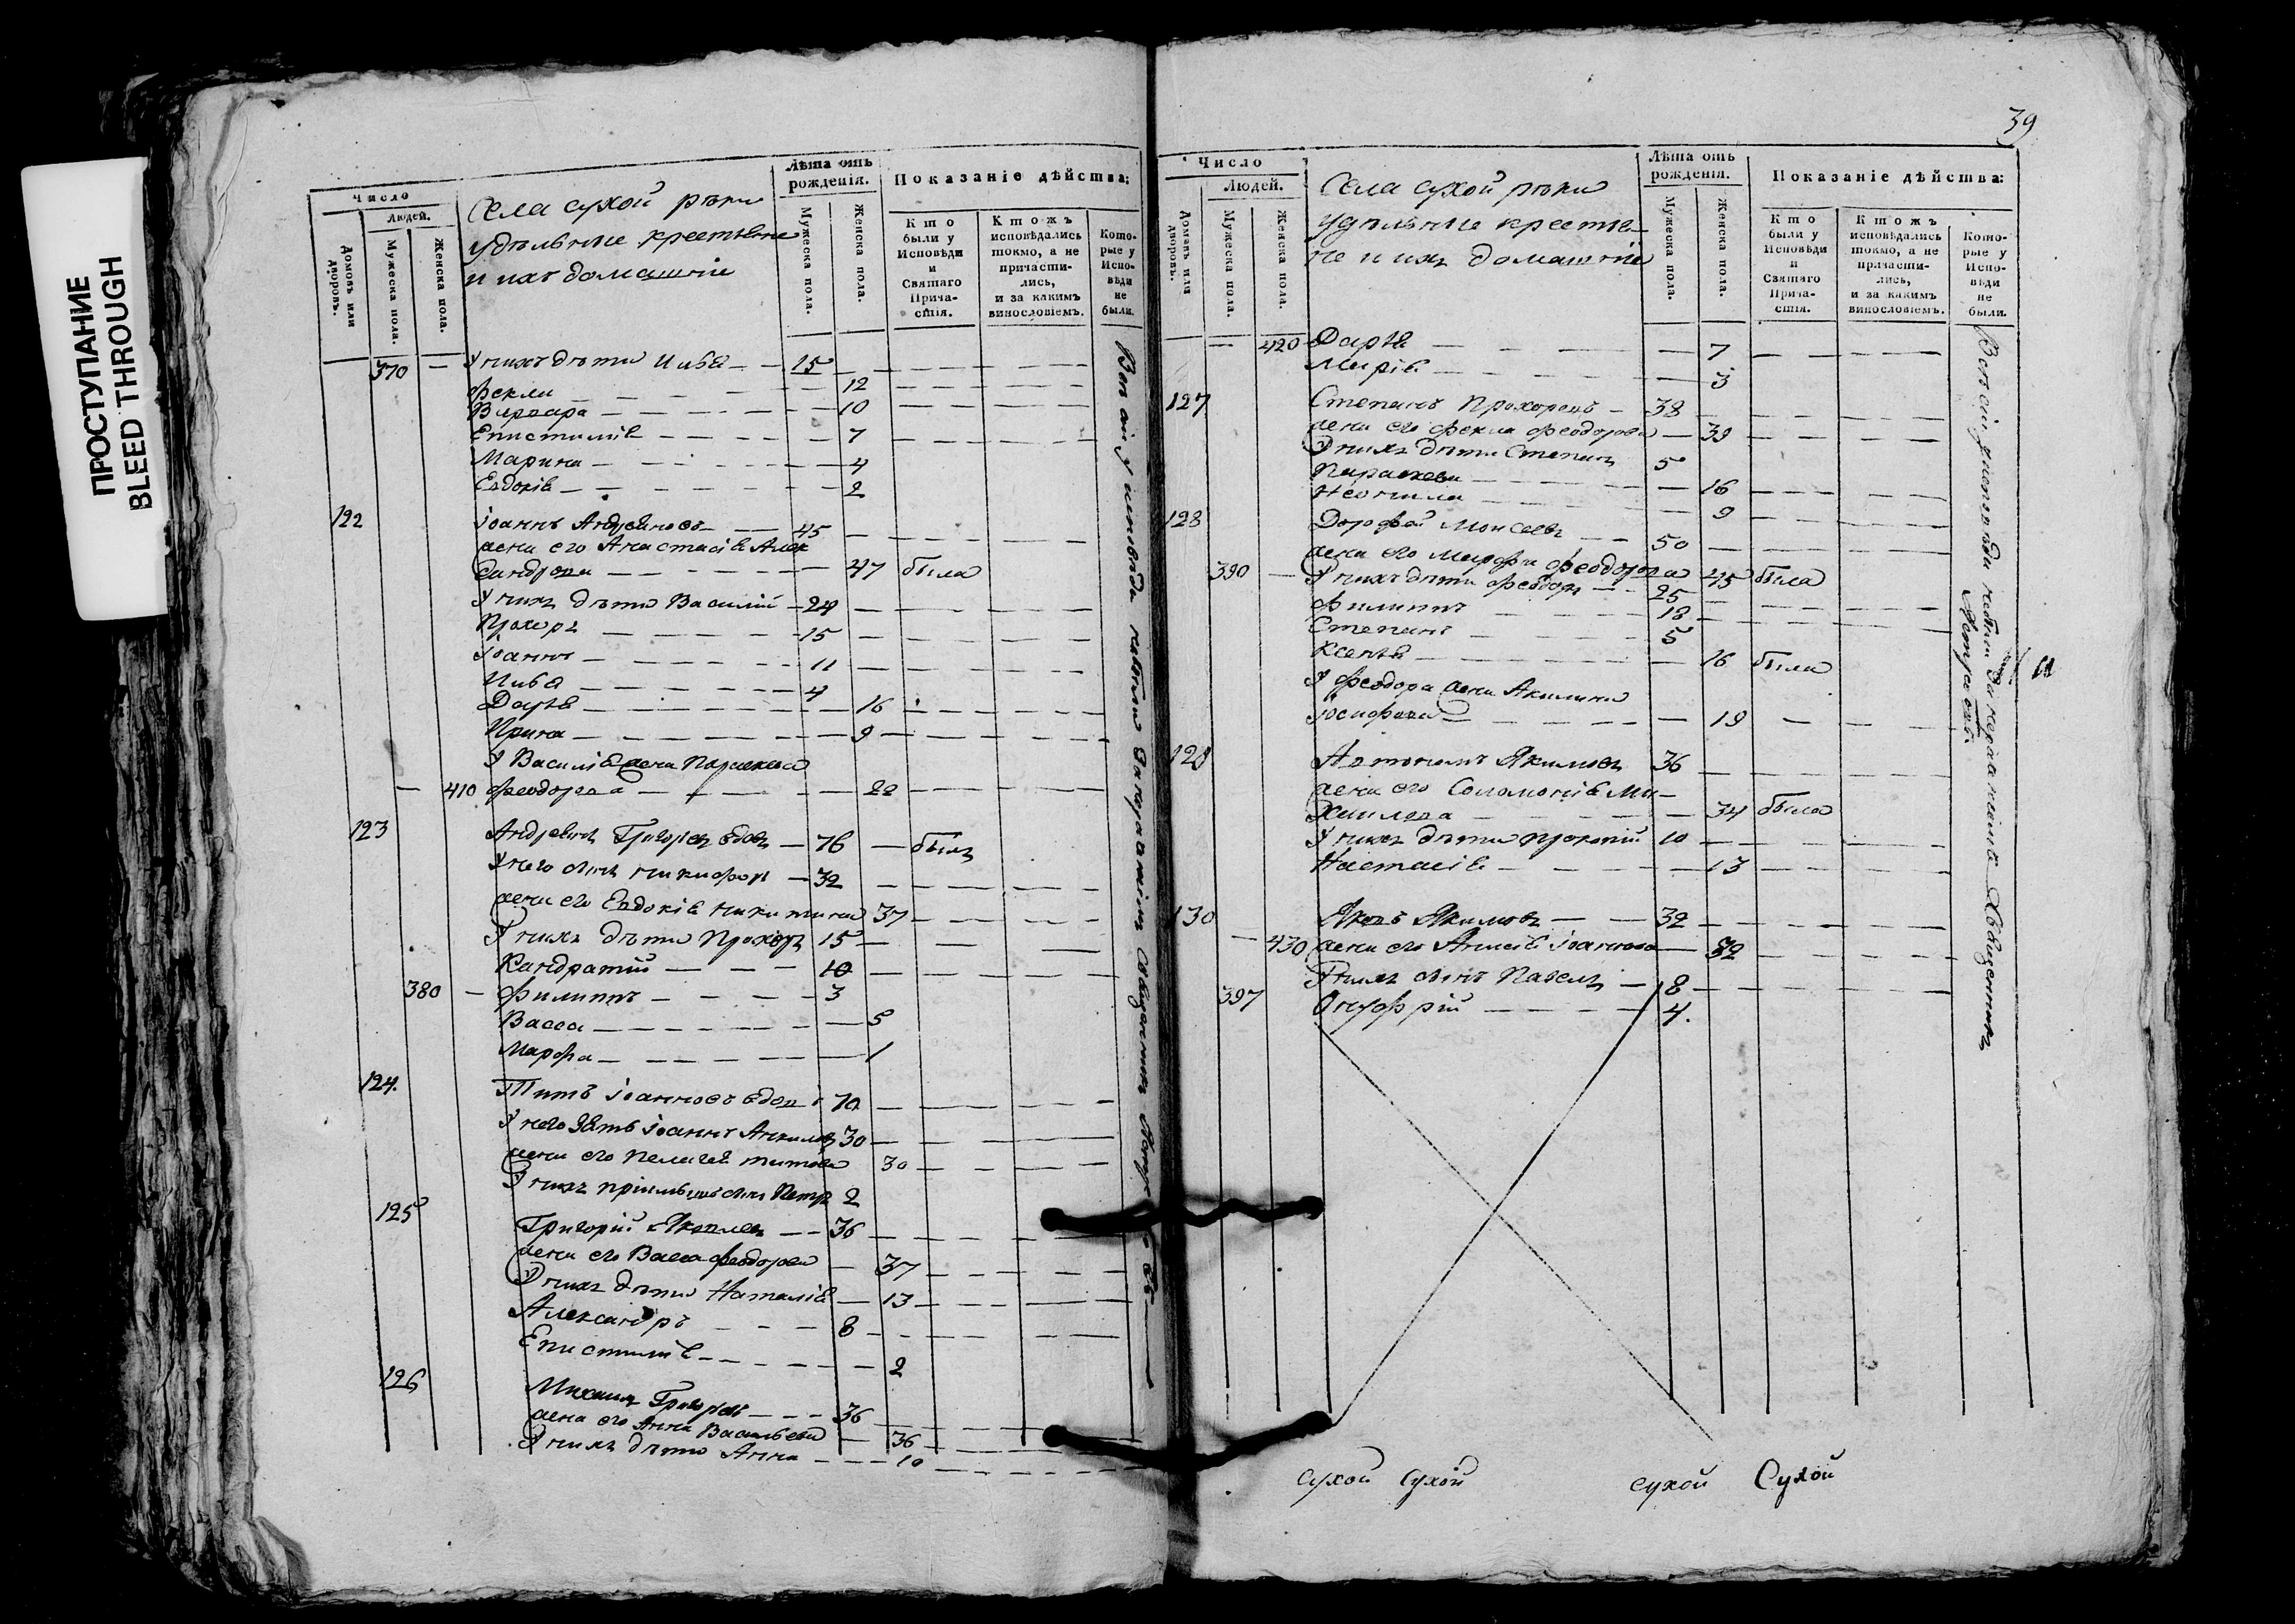 ПРОСТУПАНИЕ
BLEED THROUGH
Число
Людей.
Домовъ или дворовъ.
Мужеска пола.
Женска пола.
Села сухой рѣки
удѣльные крестьяне
и ихъ домашніи
Лѣта отъ рожденія.
Мужеска пола.
Женска пола.
Показаніе дѣйства:
Кто были у Исповѣди и Святаго Прича-стія.
Кто жъ исповѣдались токмо, а не причасти-лись, и за какимъ винословіемъ.
Кото-рые у Испо-вѣди не были.
370 — У нихъ дѣти 15
Фекла 12
Варвара 10
Епистимія 7
Марина 4
Евдокія 2
122 Іоаннъ 45
жена его Анастасія Алек
сандрова 47 была
У нихъ дѣти Василій 24
Прохоръ 15
Іоаннъ 11
4
Дарья 16
Ирина 9
У Василія жена Параскева
— 410 Феодорова 22
123 Григорьевъ вдовъ 76 — былъ
У него сынъ Никифоръ 32
жена его Евдокія Никитина 37
У нихъ дѣти Прохоръ 15
Кандратій 10
380 — Филиппъ 3
Васса 5
Марфа 1
124. Титъ Іоанновъ вдов 70
У него зять Іоаннъ 30
жена его Пелагея Титова 30
У нихъ Петръ 2
125 Григорій Яковлевъ 36
жена его Васса Феодорова 37
У нихъ дѣти Наталія 13
Александръ 8
Епистимія 2
126 Михаилъ Григорьевъ 36
жена его Анна Васильева 36
У нихъ дѣти Анна 10
Всѣ сіи у исповѣди небыли
39
Число
Людей.
Домовъ или дворовъ.
Мужеска пола.
Женска пола.
Села сухой рѣки
удѣльные крестья-
не и ихъ домашніе
Лѣта отъ рожденія.
Мужеска пола.
Женска пола.
Показаніе дѣйства:
Кто были у Исповѣди и Святаго Прича-стія.
Кто жъ исповѣдались токмо, а не причасти-лись, и за какимъ винословіемъ.
Кото-рые у Испо-вѣди не были.
— 420 Дарья 7
Марія 3
127 Степанъ Прохоровъ 38
жена его Фекла Феодорова 39
У нихъ дѣти Степанъ 5
Параскева 16
Неонила 9
128 Дорофей Моисеевъ 50
жена его Марфа Феодорова 45 была
390 — У нихъ дѣти Феодоръ 25
Филиппъ 18
Степанъ 5
Ксенія 16 была
У Феодора жена Акилина
Іосифова 19
129 Автономъ Якимовъ 36
жена его Соломонія Ми-
хаилова 34 была
У нихъ дѣти Прокопій 10
Настасія 13
130 Яковъ Якимовъ 32
— 430 жена его Іоаннова 32
У нихъ сынъ Павелъ 8
397 Онуфрій 4.
Всѣ сіи у исповѣди небыли за нераченіемъ Священникъ
Петръ
сухой Сухой сухой Сухой